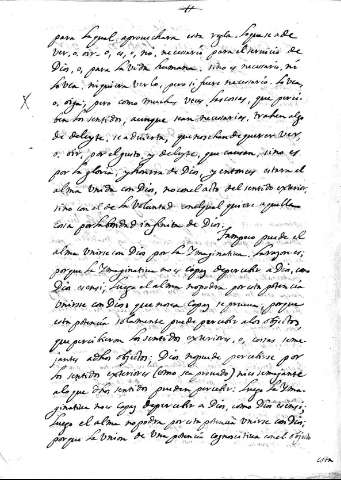 para lo qual, aprovechara esta regla. Lo que se a de
ver, o, oir, o, es, o, no, necesario para el servicio de
Dios, o, para la vida humana. sino es necesario, ni
lo vea, ni quiera verlo, pero si fuere necesario, lo vea,
o, oiga; pero como muchas veces las cosas, que perci-
ben los sentidos, aunque sean necesarias, traben algo
de deleyte, se advierta, que no se han de querer ver,
o, oir, por el gusto, y deleyte, que causan, sino es
por la gloria, y honrra de Dios, y entonces estara el
alma unida con Dios, no con el acto del sentido exterior,
sino con el de la voluntad con el qual quiere aquella
cosa por la bondad infinita de Dios.
Tampoco puede el
alma unirse con Dios por la Ymaginativa. La razon es;
porque la Ymaginativa no es capaz de percebir a Dios, como
Dios es en si; luego el alma no podra por esta potencia
unirse con Dios que no sea capaz se prueva, porque
esta potencia solamente puede percebir a los objectos,
que percibieron los sentidos exteriores, o, cosas seme-
jantes a dhos objectos; Dios no puede percebirse por
los sentidos exteriores (como se a provado) ni es semejante
a lo que dhos sentidos pueden percebir: luego la Yma-
ginativa no es capaz de percebir a Dios, como Dios es en si;
luego el alma no podra por esta potencia unirse con Dios;
porque la union de una potencia cognoscitiva con el objecto